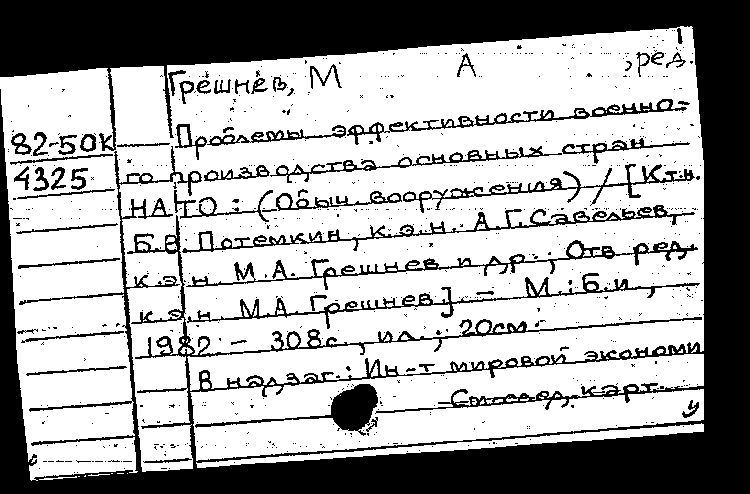 Грешнев, М А , ред.
82-50К Проблемы эффективности военно-
4325 го производства основных стран
НАТО : (Обыч. вооружения) / [К.т.н.
Б.В. Потемкин, к.э.н. А.Г. Савельев,
к.э.н. М.А. Грешнев и др.; Отв. ред.
к.э.н. М.А. Грешнев]. - М.: Б.и.,
1982 - 308с., ил.; 20см.
В надзаг.: Ин-т мировой экономи
См. след. карт.
у